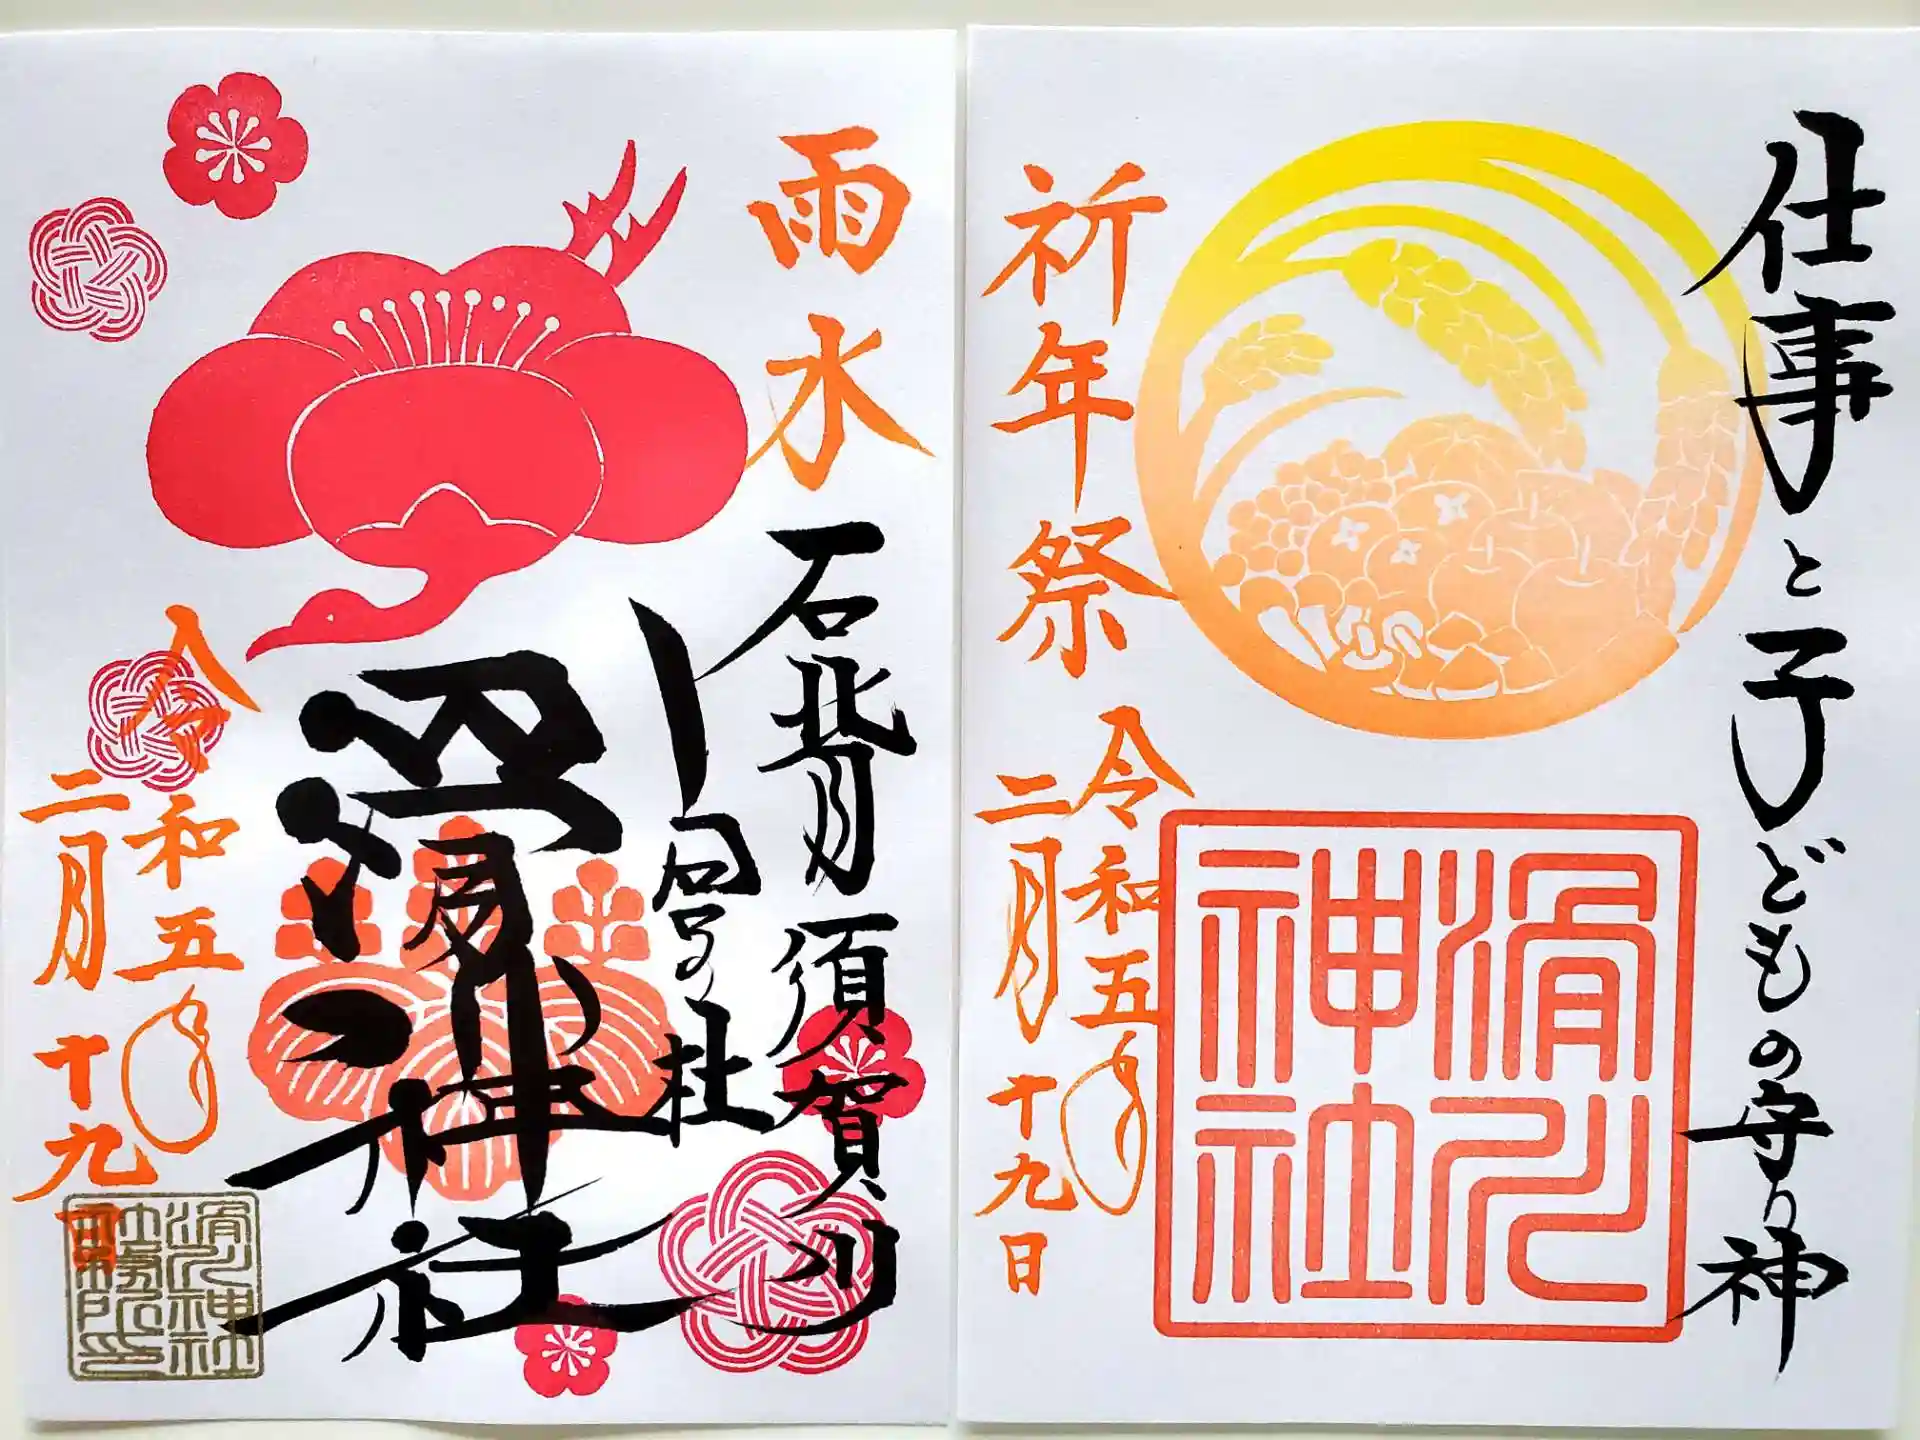 仕事と子どもの守り神
滑川
神社
祈年祭
令和五年
二月十九日
雨水
石背須賀川
滑川神社
令和五年
二月十九日
滑川神社
社務所印